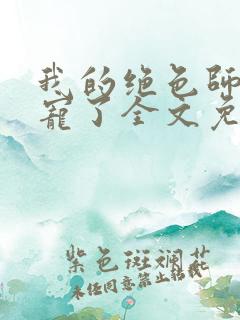 我的绝色师
宠了全文免
紫色斑斓花
未经同意禁止转载